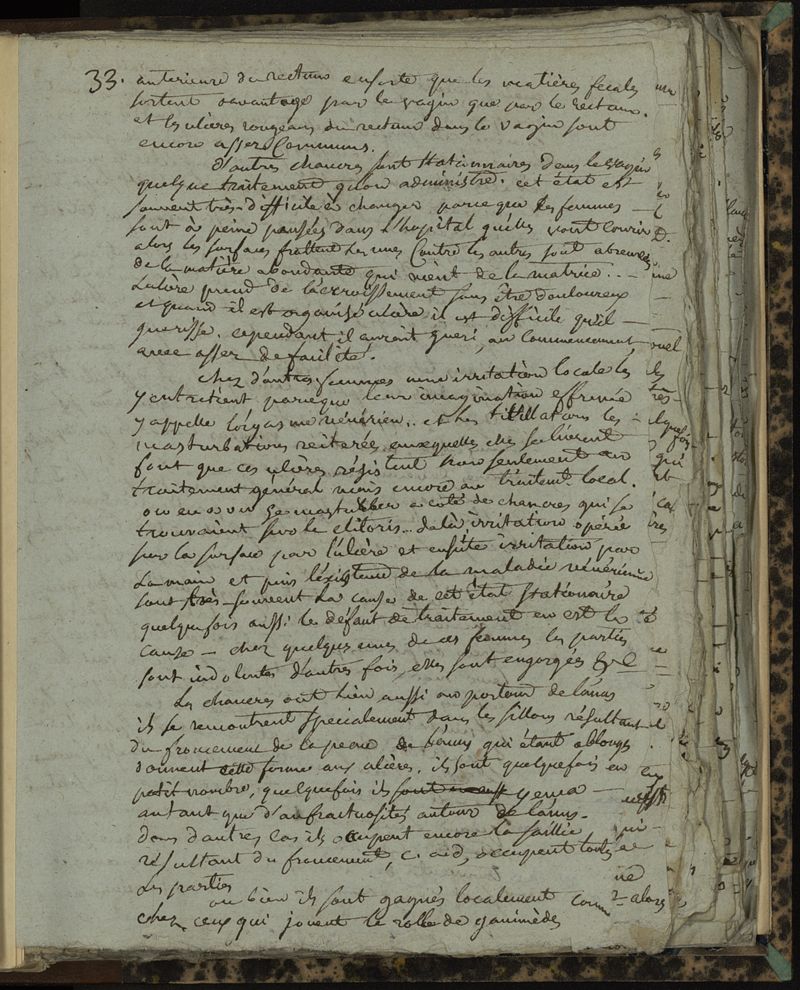 33. anterieure du rectum ensorte que les matières fecales
sortent davantage par le vagin que par le rectum.
et les ulcères rongeans du rectum dans le vagin sont
encore assez Communs.
D'autres chancres sont stationnaires dans le vagin
quelque traitement qu'on administre. cet état est
souvent très difficile à changer parceque les femmes
sont à peine pansées dans l'hospital qu'elles vont courir
alors les surfaces frottent les unes Contre les autres sont abreuvées
de la matière abondante qui vient de la matrice ..
L'ulcère prend de l'accroissement sans être douloureux
et quand il est organisé ulcère il est difficile qu'il
guerisse. cependant il auroit gueri au commencement
avec assez de facilité.
Chez d'autres femmes une irritation locale les
y entretient parceque leur imagination effrenée
y appelle l'orgasme vénérien .. et les titillations les
masturbations reiterées auxquelles elles se livrent
font que ces ulcères résistent non seulement au
traitement général mais encore au traitent local.
on en a vu se masturber à coté de chancres qui se
trouvaient sur le clitoris .. delà irritation opérée
sur la surface par l'ulcère et ensuite irritation par
la main et puis l'existence de la maladie vénérienne
sont très-souvent la cause de cet état stationaire
quelquefois aussi le défaut de traitement en est la
cause — chez quelques unes de ces femmes les parties
sont indolentes d'autres fois elles sont engorgées &c
Les chancres ont lieu aussi au pourtour de l'anus
ils se remontrent specialement dans les sillons résultant
du froncement de la peau qui étant oblongs
donnent cette forme aux ulcères. ils sont quelquefois en
petit nombre, quelquefois ils y en a
autant que d'anfractuosités autour de l'anus.
dans d'autres cas ils occupent encore la saillie
résultant du froncement, c. a d, occupent toutes
les parties
ou bien ils sont gagnés localement comme
chez ceux qui jouent le rolle de ganimèdes